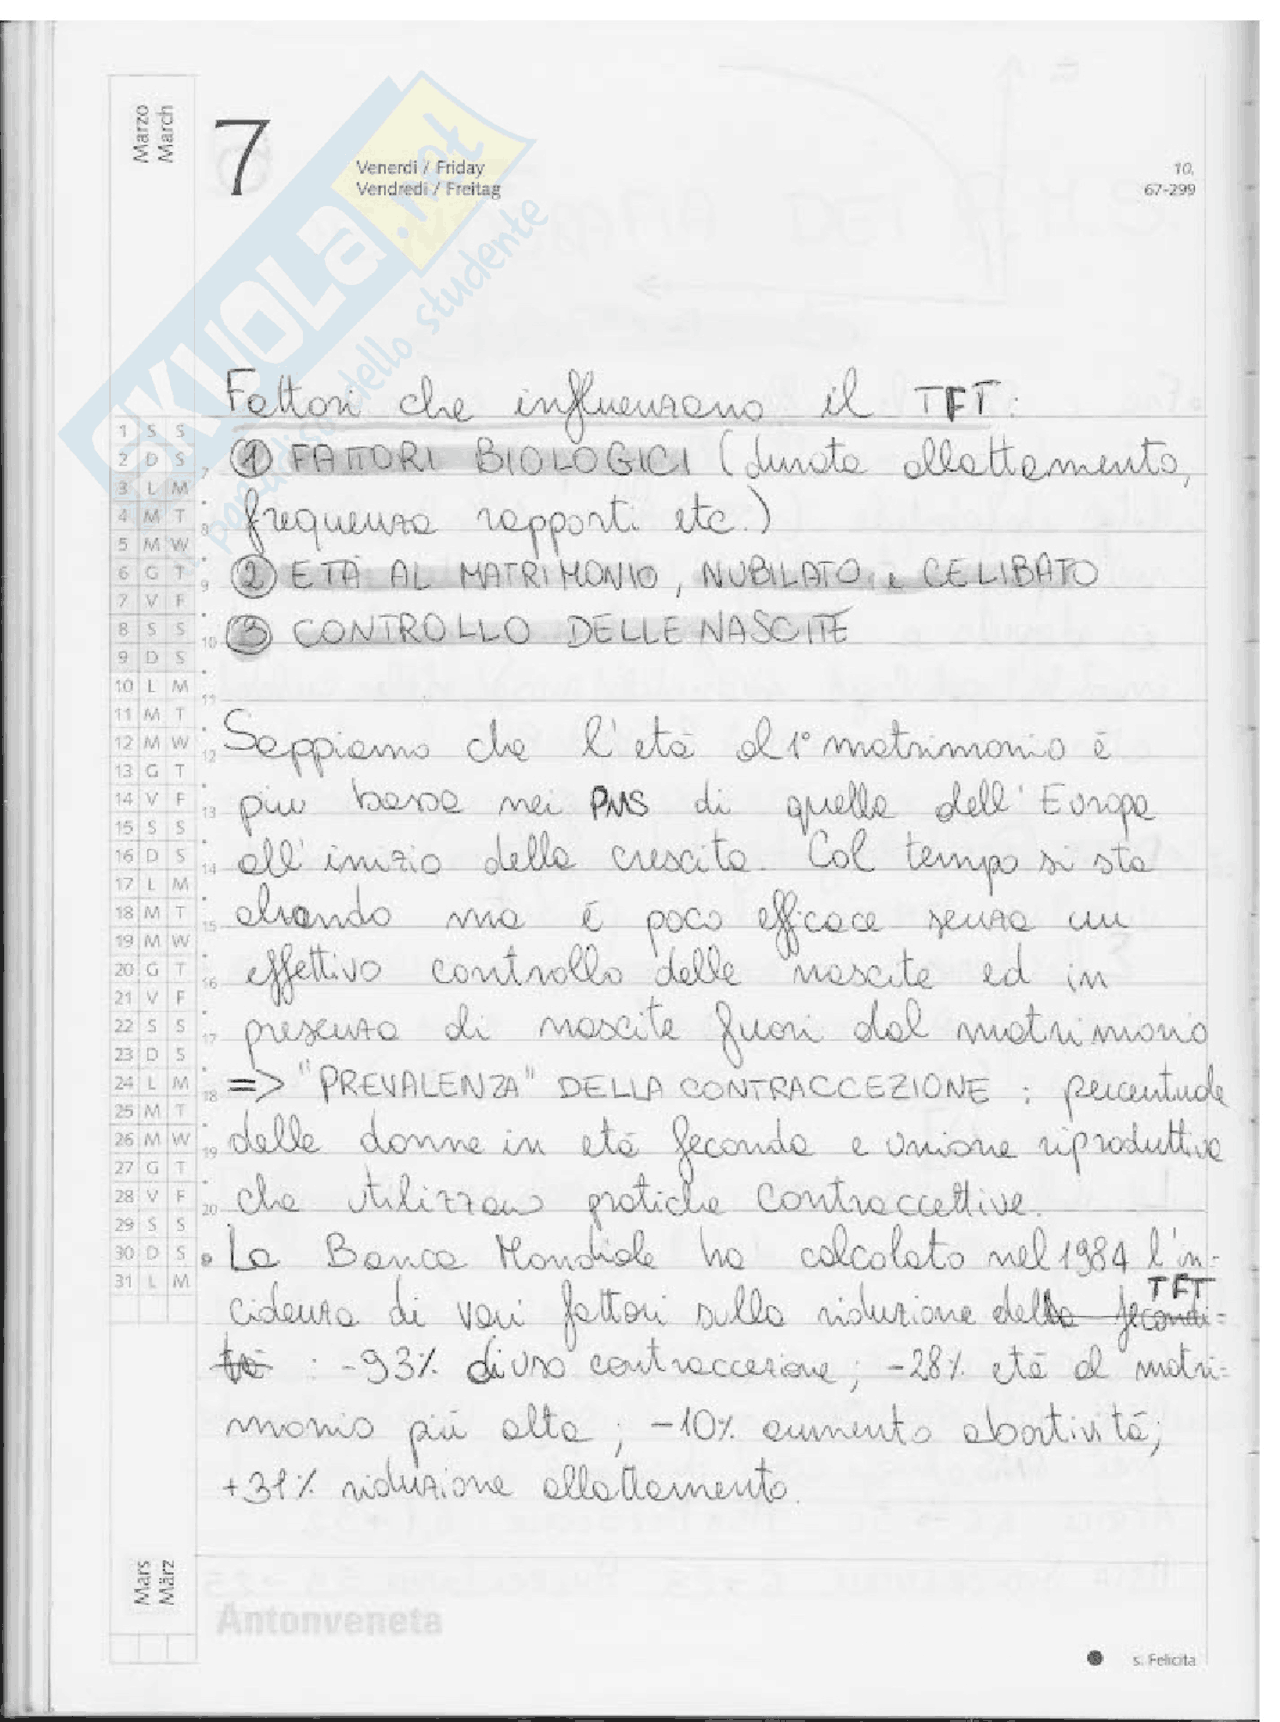 Marzo
March
7
Venerdi / Friday
Vendredi / Freitag
10.
67-299
SKUOLA.net
paradiso dello studente
Fattori che influenzano il TFT:
① FATTORI BIOLOGICI (durata allattamento,
frequenza rapporti etc.)
② ETÀ AL MATRIMONIO, NUBILATO e CELIBATO
③ CONTROLLO DELLE NASCITE
Sappiamo che l'età al 1° matrimonio è
più bassa nei PMS di quella dell'Europa
all'inizio della crescita. Col tempo si sta
alzando ma è poco efficace senza un
effettivo controllo delle nascite ed in
presenza di nascite fuori dal matrimonio
=> "PREVALENZA" DELLA CONTRACCEZIONE : percentuale
delle donne in età feconda e unione riproduttiva
che utilizzano pratiche contraccettive.
• La Banca Mondiale ha calcolato nel 1984 l'in-
cidenza di vari fattori sulla riduzione della fecondi- TFT
tà : -93% di uso contraccezione; -28% età al matri-
monio più alta ; -10% aumento abortività;
+31% riduzione allattamento.
1 S S
2 D S
3 L M
4 M T
5 M W
6 G T
7 V F
8 S S
9 D S
10 L M
11 M T
12 M W
13 G T
14 V F
15 S S
16 D S
17 L M
18 M T
19 M W
20 G T
21 V F
22 S S
23 D S
24 L M
25 M T
26 M W
27 G T
28 V F
29 S S
30 D S
31 L M
7
8
9
10
11
12
13
14
15
16
17
18
19
20
Mars
März
Antonveneta
s. Felicita